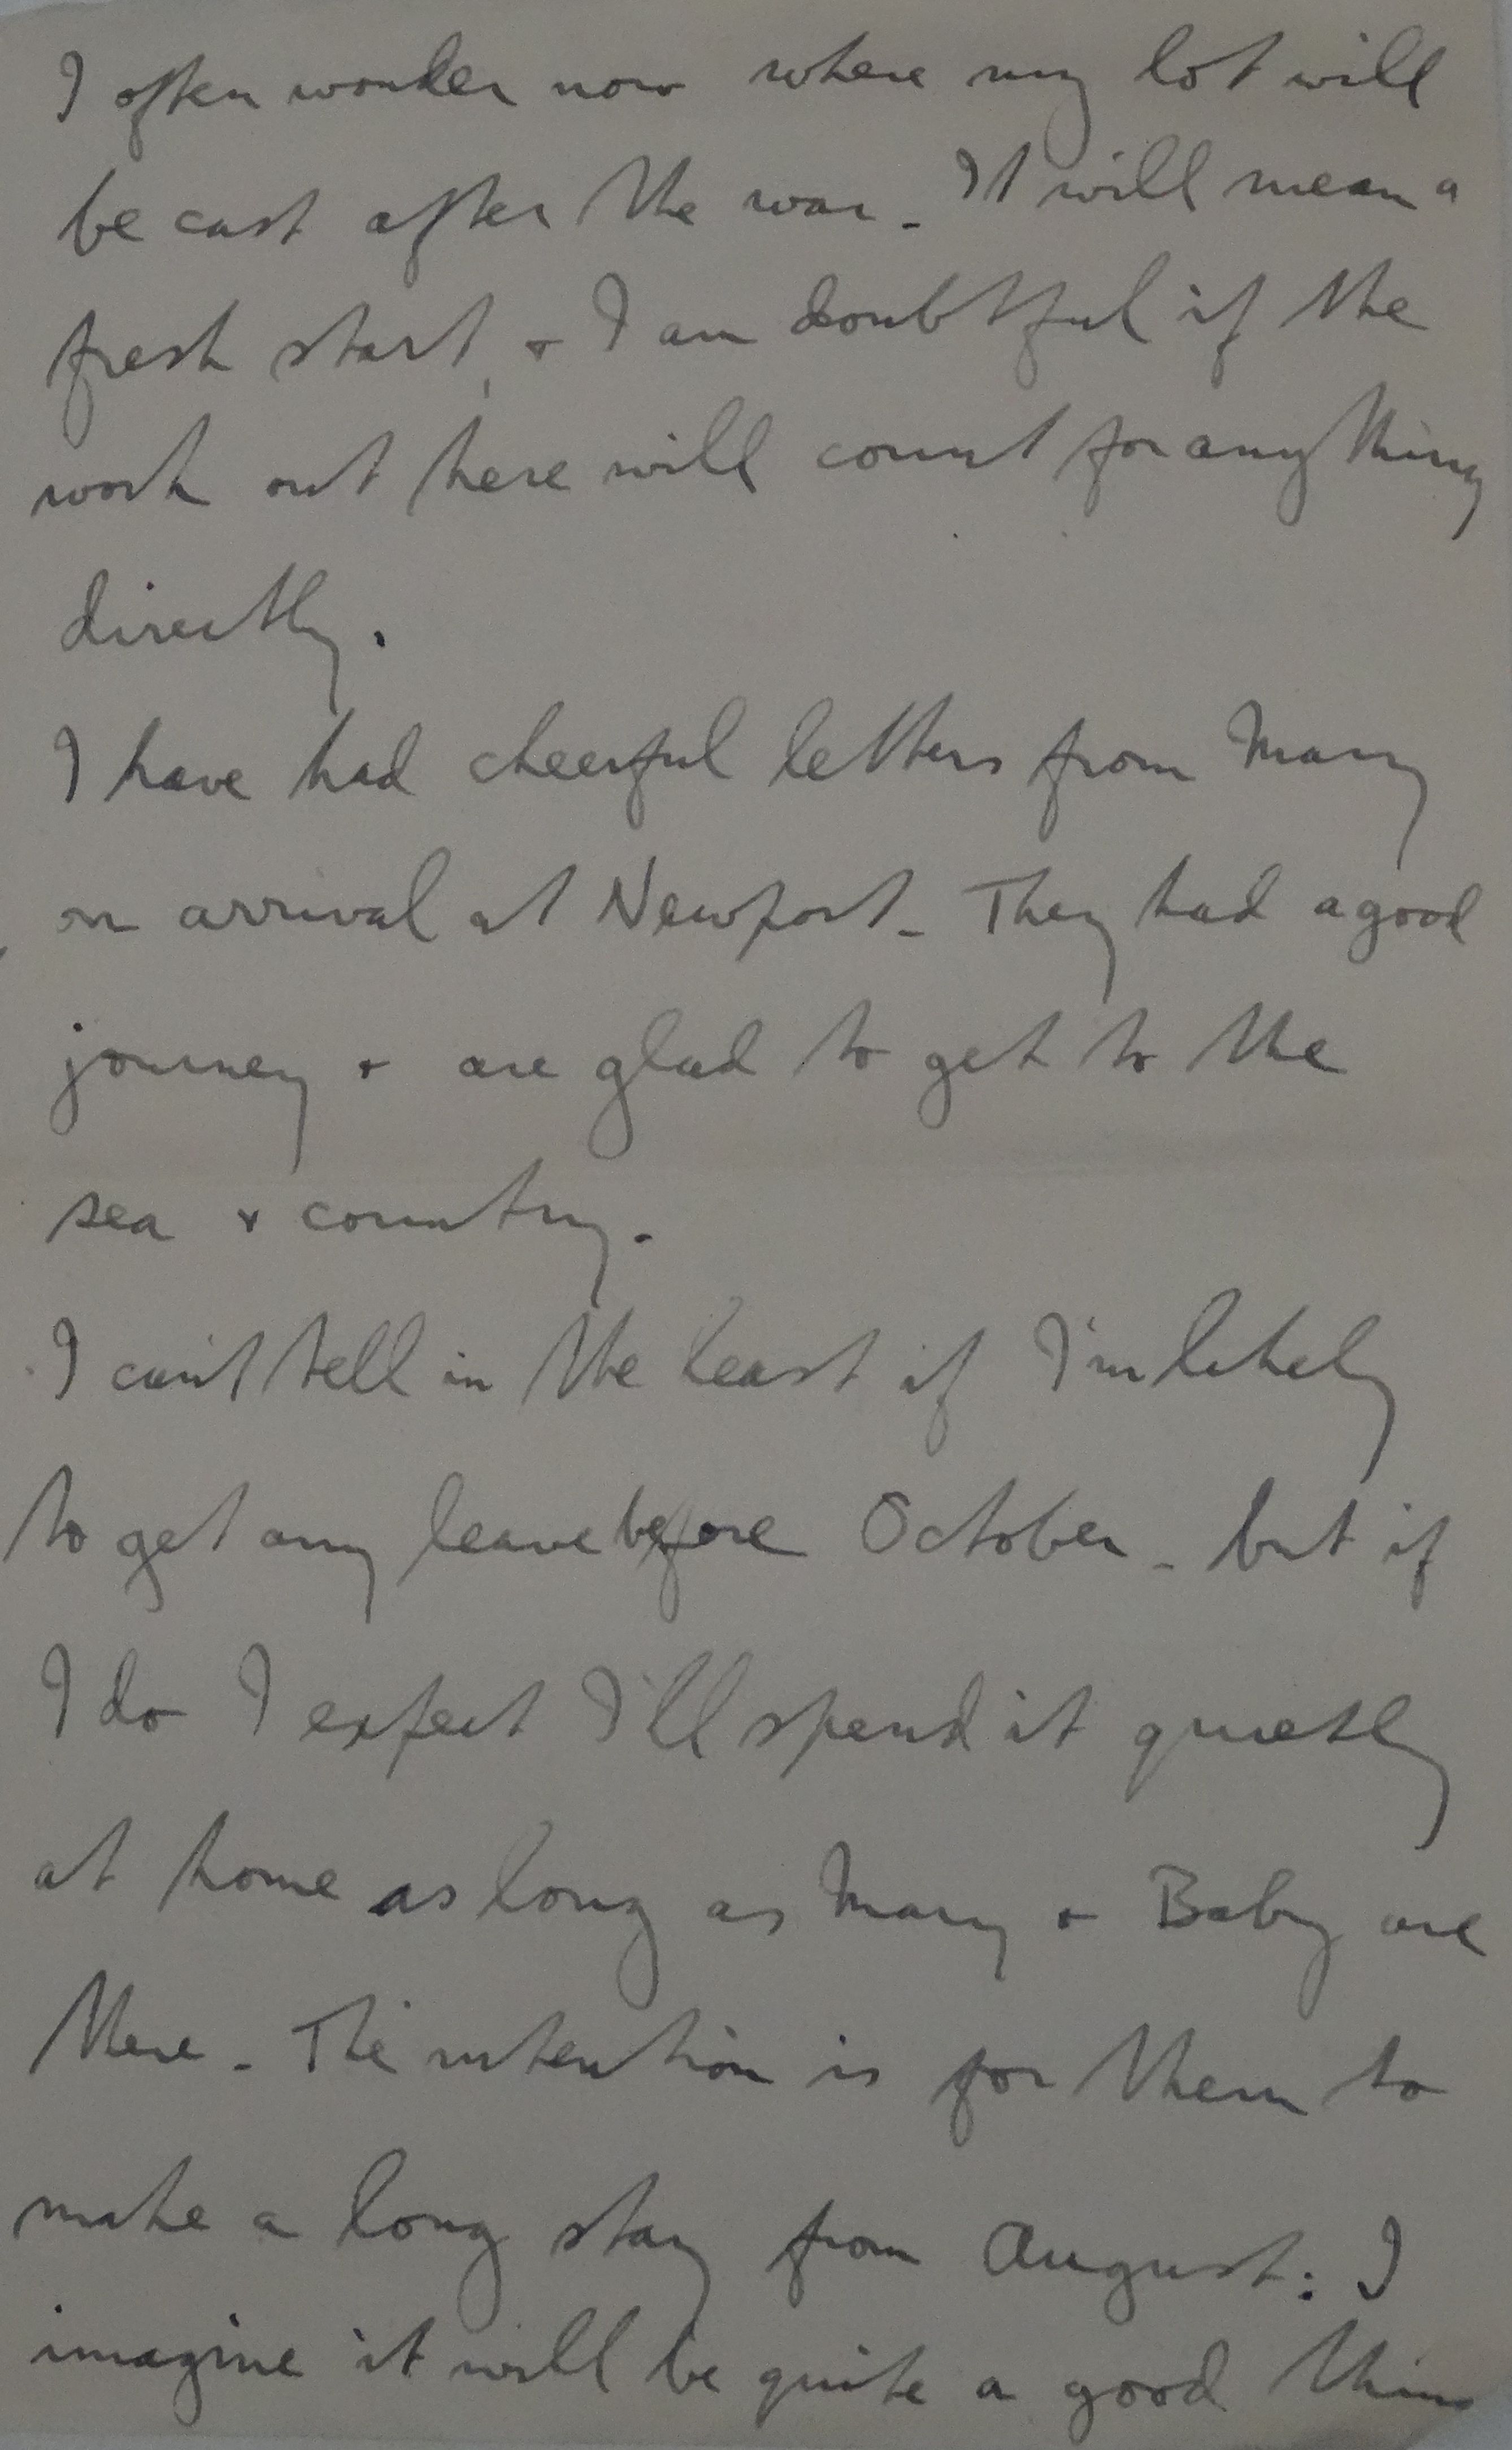 I often wonder now where my lot will
be cast after the war - It will mean a
fresh start, & I am doubtful if the
work out here will count for anything
directly.
I have had cheerful letters from Mary
on arrival at Newport - They had a good
journey & are glad to get to the
sea & country.
I can't tell in the least if I'm likely
to get any leave before October - but if
I do I expect I'll spend it quietly
at home as long as Mary & Baby are
there - The intention is for them to
make a long stay from August: I
imagine it will be quite a good thing